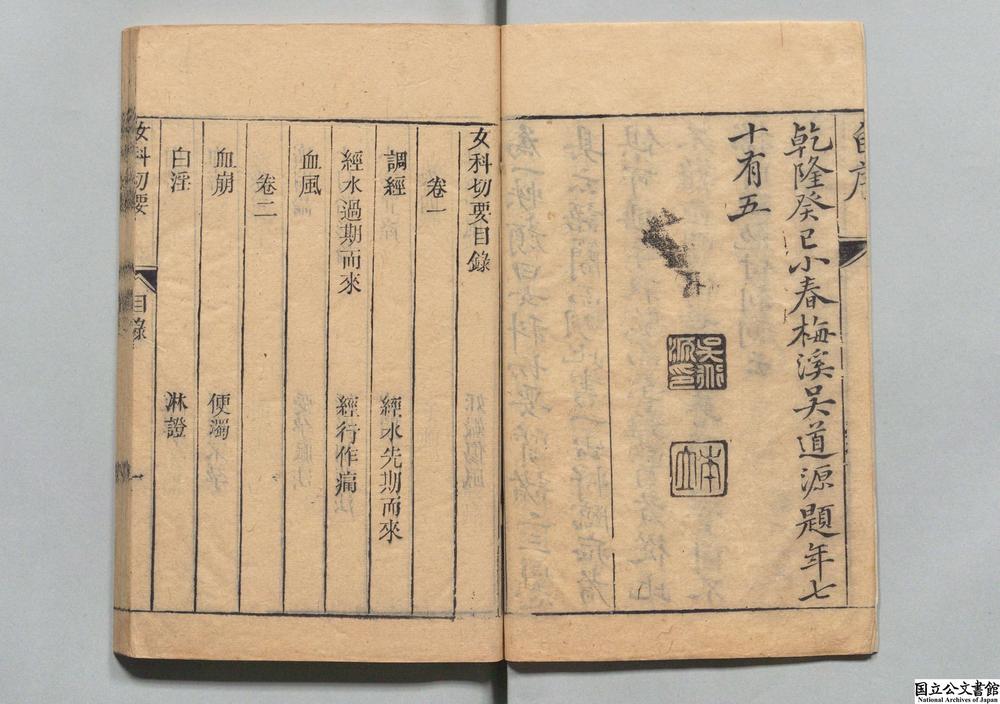 自序
乾隆癸巳小春梅溪吴道源題年七
十有五
女科切要目錄
卷一
調經 經水先期而來
經水過期而來 經行作痛
血風
卷二
血崩 便濁
白淫 淋證
女科切要 目錄 一
国立公文書館
National Archives of Japan